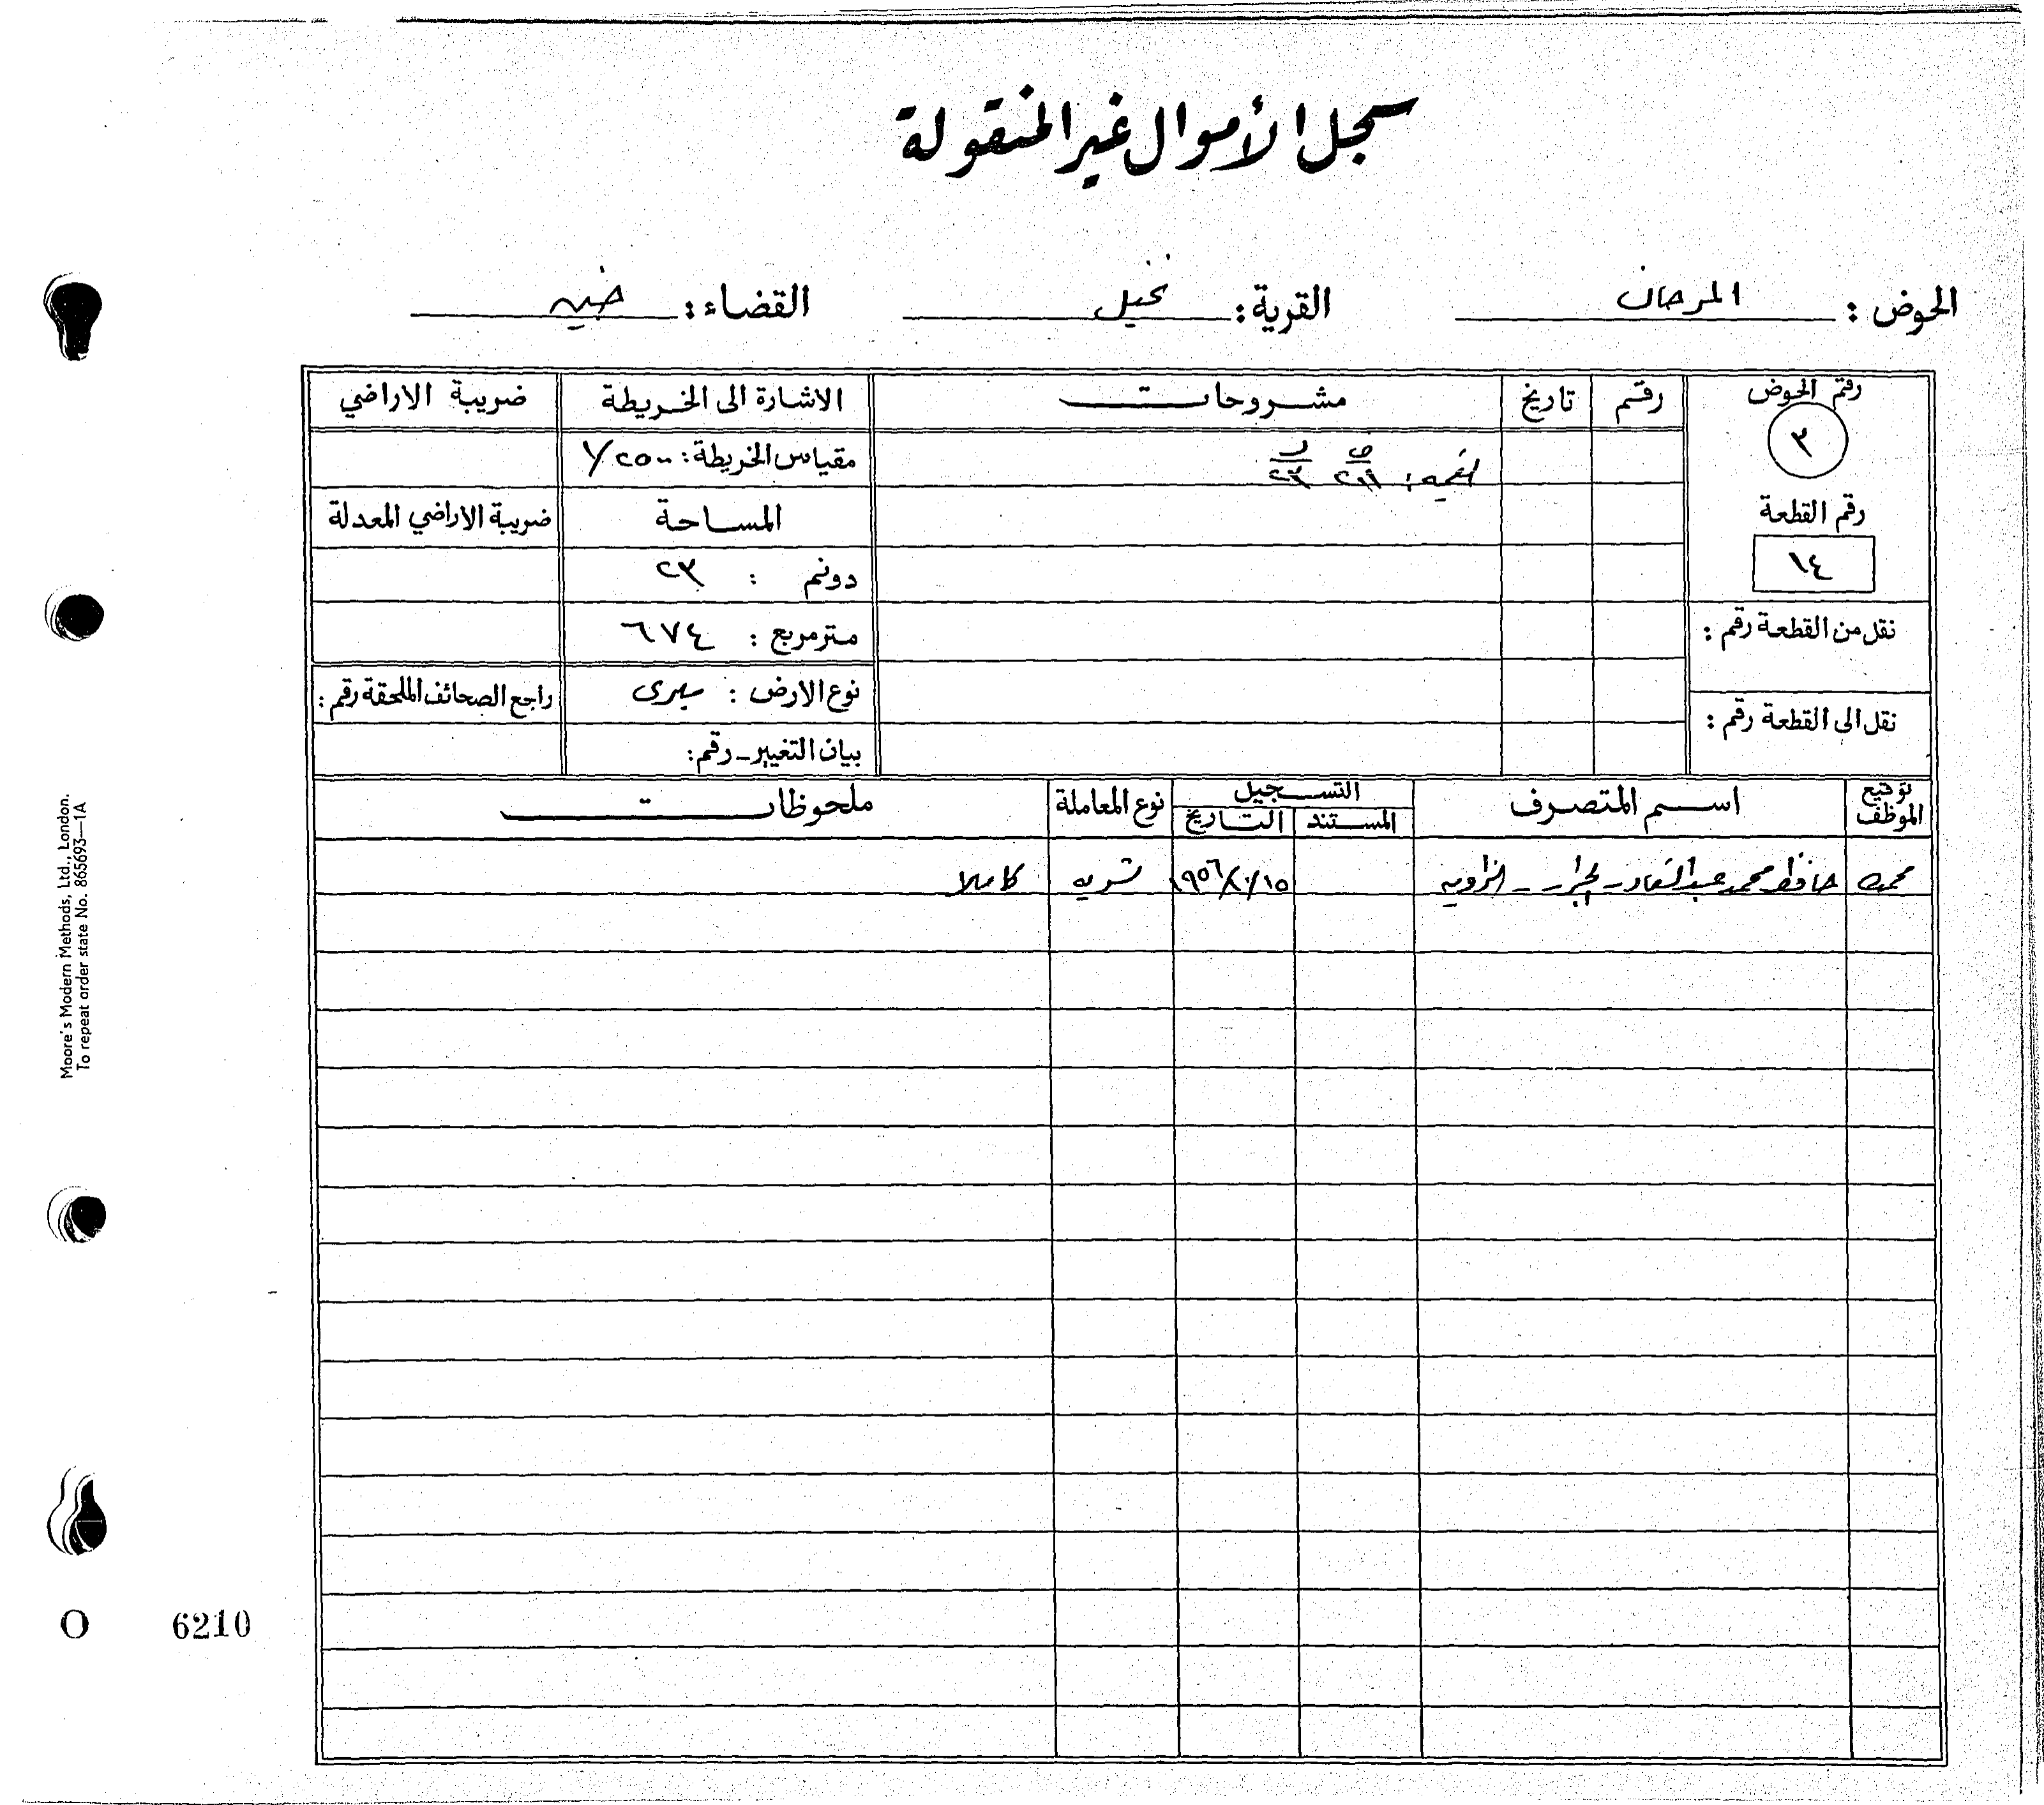 سجل الأموال غير المنقولة
الحوض : المرحان القرية : نخيل القضاء : جنين
رقم الحوض رقم تاريخ مشروحات الاشارة الى الخريطة ضريبة الاراضي
٣
مقياس الخريطة : ١/٢٥٠٠
رقم القطعة المساحة ضريبة الاراضي المعدلة
١٤ دونم : ٢٣
نقل من القطعة رقم : متر مربع : ٦٧٤
نوع الارض : ميرى راجع الصحائف الملحقة رقم :
نقل الى القطعة رقم :
بيان التغيير - رقم :
توقيع الموظف اسم المتصرف التسجيل نوع المعاملة ملحوظات
المستند التاريخ
حافظ محمد عبد القادر جرار - الزاويه ١٩٥٦/٧/١٥ تسويه كاملا
Moore's Modern Methods, Ltd., London.
To repeat order state No. 865693—1A
O 6210